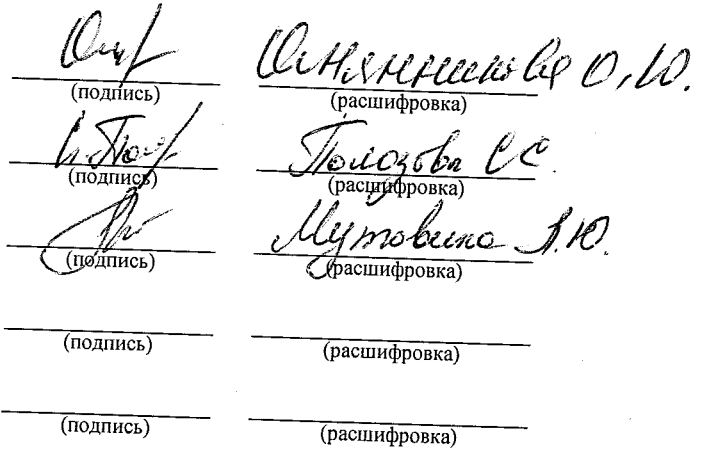 О.Ю.
(подпись) (расшифровка)
Полозова С.С.
(подпись) (расшифровка)
Мутовина Л.Ю.
(подпись) (расшифровка)
(подпись) (расшифровка)
(подпись) (расшифровка)